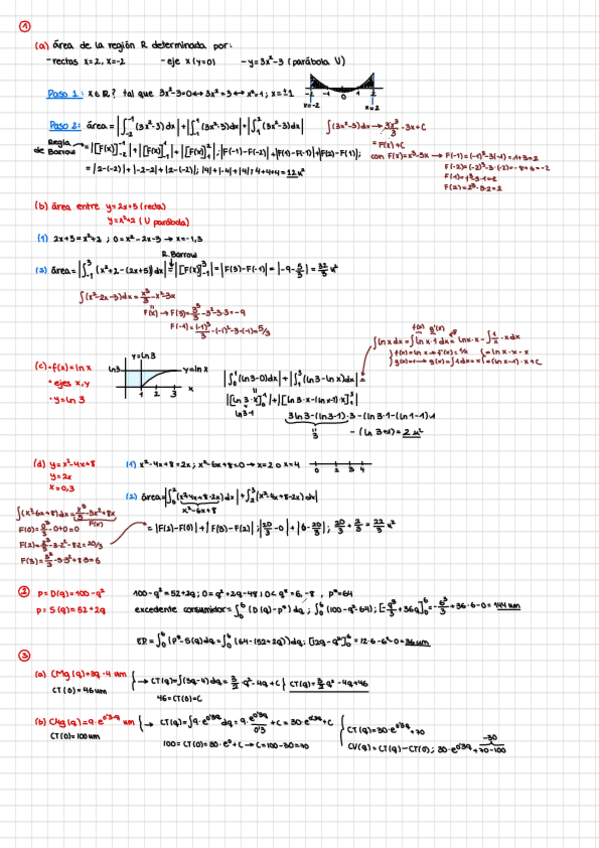 1
(a) área de la región R determinada por:
- rectas x=2, x=-2 - eje x (y=0) - y=3x²-3 (parábola U)
Paso 1: x∈R? tal que 3x²-3=0 ↔ 3x²=3 ↔ x²=1; x=±1
-2 -1 0 1 2
x=-2 x=2
Paso 2: área = |∫₋₂⁻¹ (3x²-3) dx| + |∫₋₁¹ (3x²-3) dx| + |∫₁² (3x²-3) dx|
∫(3x²-3) dx → 3x³/3 - 3x + C
= F(x) + C
Regla de Barrow = |[F(x)]₋₂⁻¹| + |[F(x)]₋₁¹| + |[F(x)]₁²|; |F(-1)-F(-2)| + |F(1)-F(-1)| + |F(2)-F(1)|;
con F(x)=x³-3x → F(-1)=(-1)³-3(-1)=-1+3=2
F(-2)=(-2)³-3·(-2)=-8+6=-2
F(1)=1³-3·1=-2
F(2)=2³-3·2=2
= |2-(-2)| + |-2-2| + |2-(-2)|; |4|+|-4|+|4|; 4+4+4=12 u²
(b) área entre y=2x+5 (recta)
y=x²+2 (U parábola)
(1) 2x+5=x²+2; 0=x²-2x-3 → x=-1,3
R. Barrow
(2) área = |∫₋₁³ (x²+2-(2x+5)) dx| = |[F(x)]₋₁³| = |F(3)-F(-1)| = |-9-5/3| = 32/3 u²
∫(x²-2x-3)dx = x³/3 - x² - 3x
F(x) → F(3)= 3³/3 - 3² - 3·3 = -9
F(-1)= (-1)³/3 - (-1)² - 3·(-1) = 5/3
f(x) g'(x)
∫ln x dx = ∫ln x · 1 dx = ln x · x - ∫1/x · x dx
(c) · f(x)=ln x
• ejes x,y
• y=ln3
y=ln3
ln3 y=ln x
1 2 3 x
|∫₀¹ (ln3-0)dx| + |∫₁³ (ln3-ln x)dx| =
|[ln 3·x]₀¹| + |[ln 3·x-(ln x-1)·x]₁³|
ln3·1 3 ln 3-(ln3-1)·3 - (ln 3·1-(ln1-1)·1)
3 - (ln 3+1) = 2 u²
(d) y=x²-4x+8
y=2x
x=0,3
(1) x²-4x+8=2x; x²-6x+8=0 → x=2 o x=4
0 2 3 4
(2) área = |∫₀² (x²-4x+8-2x) dx| + |∫₂³ (x²-4x+8-2x) dx|
x²-6x+8
∫(x²-6x+8)dx = x³/3 - 3x² + 8x
F(x)
F(0)= 0³/3 - 0+0=0
F(2)= 2³/3 - 3·2² - 8·2 = 20/3
F(3)= 3³/3 - 3·3² + 8·3 = 6
= |F(2)-F(0)| + |F(3)-F(2)|; |20/3 - 0| + |6-20/3|; 20/3 + 2/3 = 22/3 u²
2
p=D(q)=100-q² 100-q²=52+2q; 0=q²+2q-48; 0<q°=6,-8, p°=64
p=S(q)=52+2q excedente consumidor = ∫₀⁶ (D(q)-p°) dq; ∫₀⁶ (100-q²-64); [-q³/3 + 36q]₀⁶ = -6³/3 + 36·6-0 = 144 um
EP = ∫₀⁶ (p°-S(q)) dq = ∫₀⁶ (64-(52+2q)) dq; [12q-q²]₀⁶ = 12·6-6²-0 = 36 um
3
(a) CMg(q)=3q-4 um → CT(q)=∫(3q-4) dq = 3/2·q²-4q+C CT(q)=3/2 q²-4q+46
CT(0)=46um 46=CT(0)=C
(b) CMg(q)=9·e^0'3q um → CT(q)=∫9·e^0'3q dq = 9·e^0'3q/0'3 + C = 30·e^0'3q + C CT(q)=30·e^0'3q+70
CT(0)=100um 100=CT(0)=30·e⁰+C → C=100-30=70 CV(q)=CT(q)-CT(0); 30·e^0'3q+70-100
-30